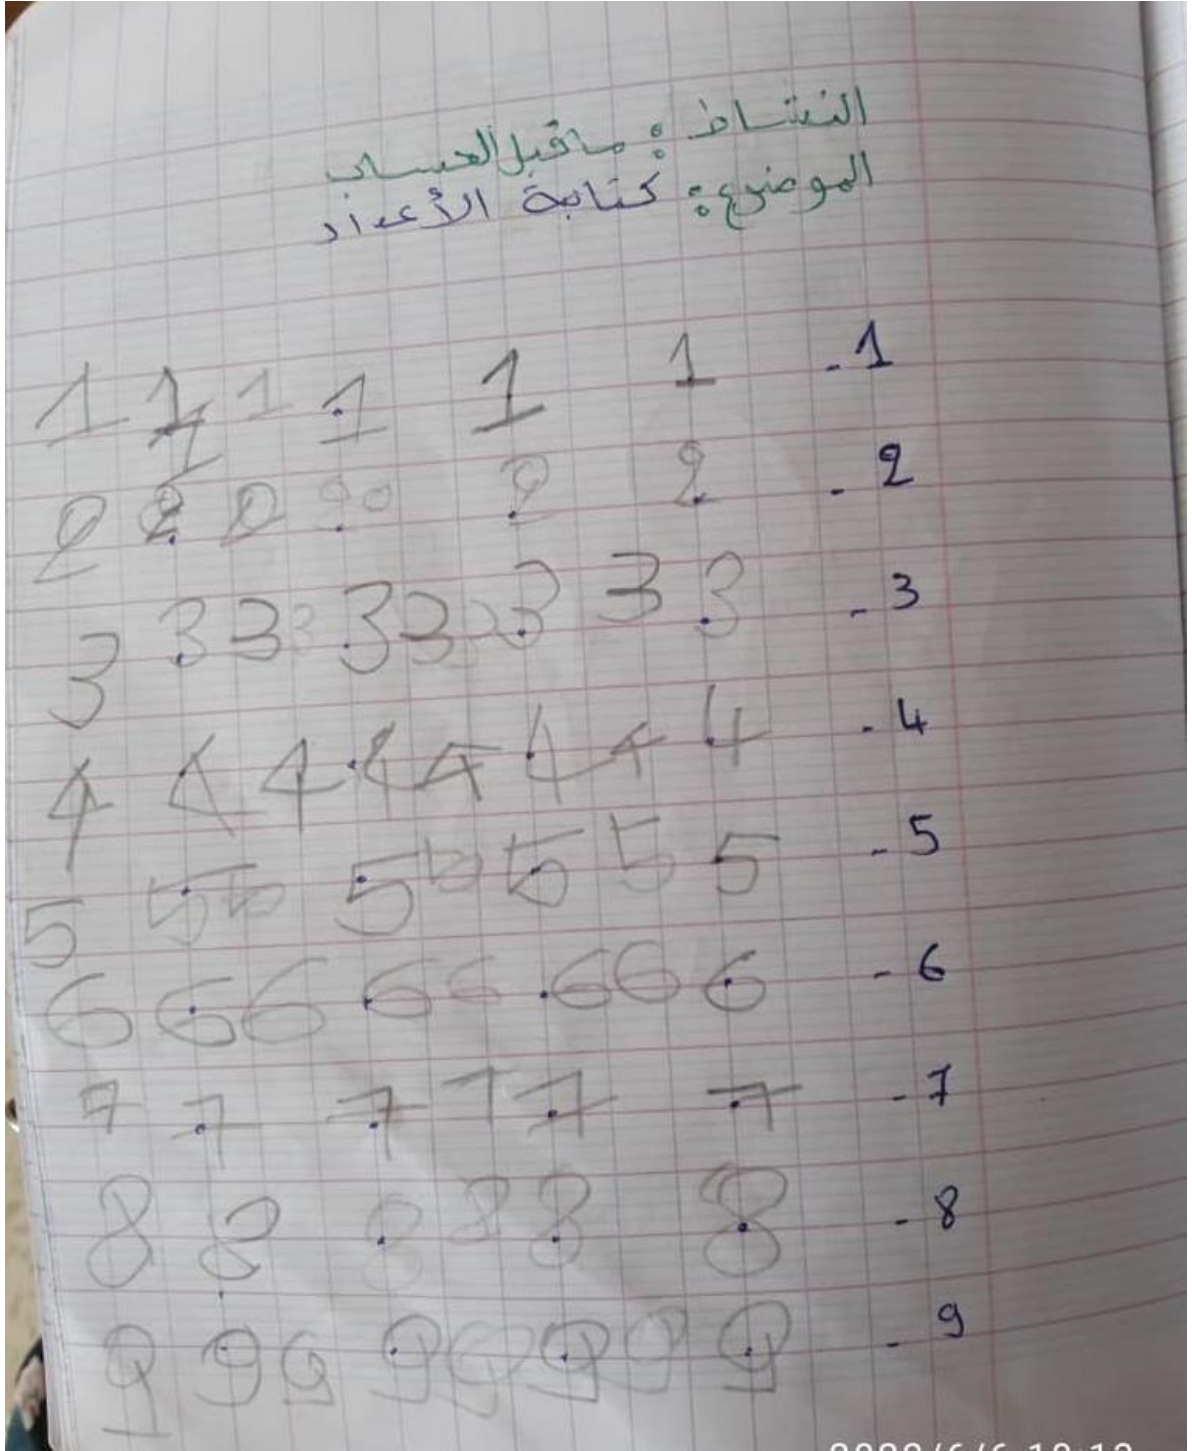 النشاط : ما قبل الحساب
الموضوع : كتابة الأعداد
- 1 1 1 1 1 1 1
- 2 2 2 2 2 2 2
- 3 3 3 3 3 3 3 3 3 3
- 4 4 4 4 4 4 4 4 4
- 5 5 5 5 5 5 5 5 5
- 6 6 6 6 6 6 6 6 6
- 7 7 7 7 7 7 7
- 8 8 8 8 8 8 8
- 9 9 9 9 9 9 9 9 9